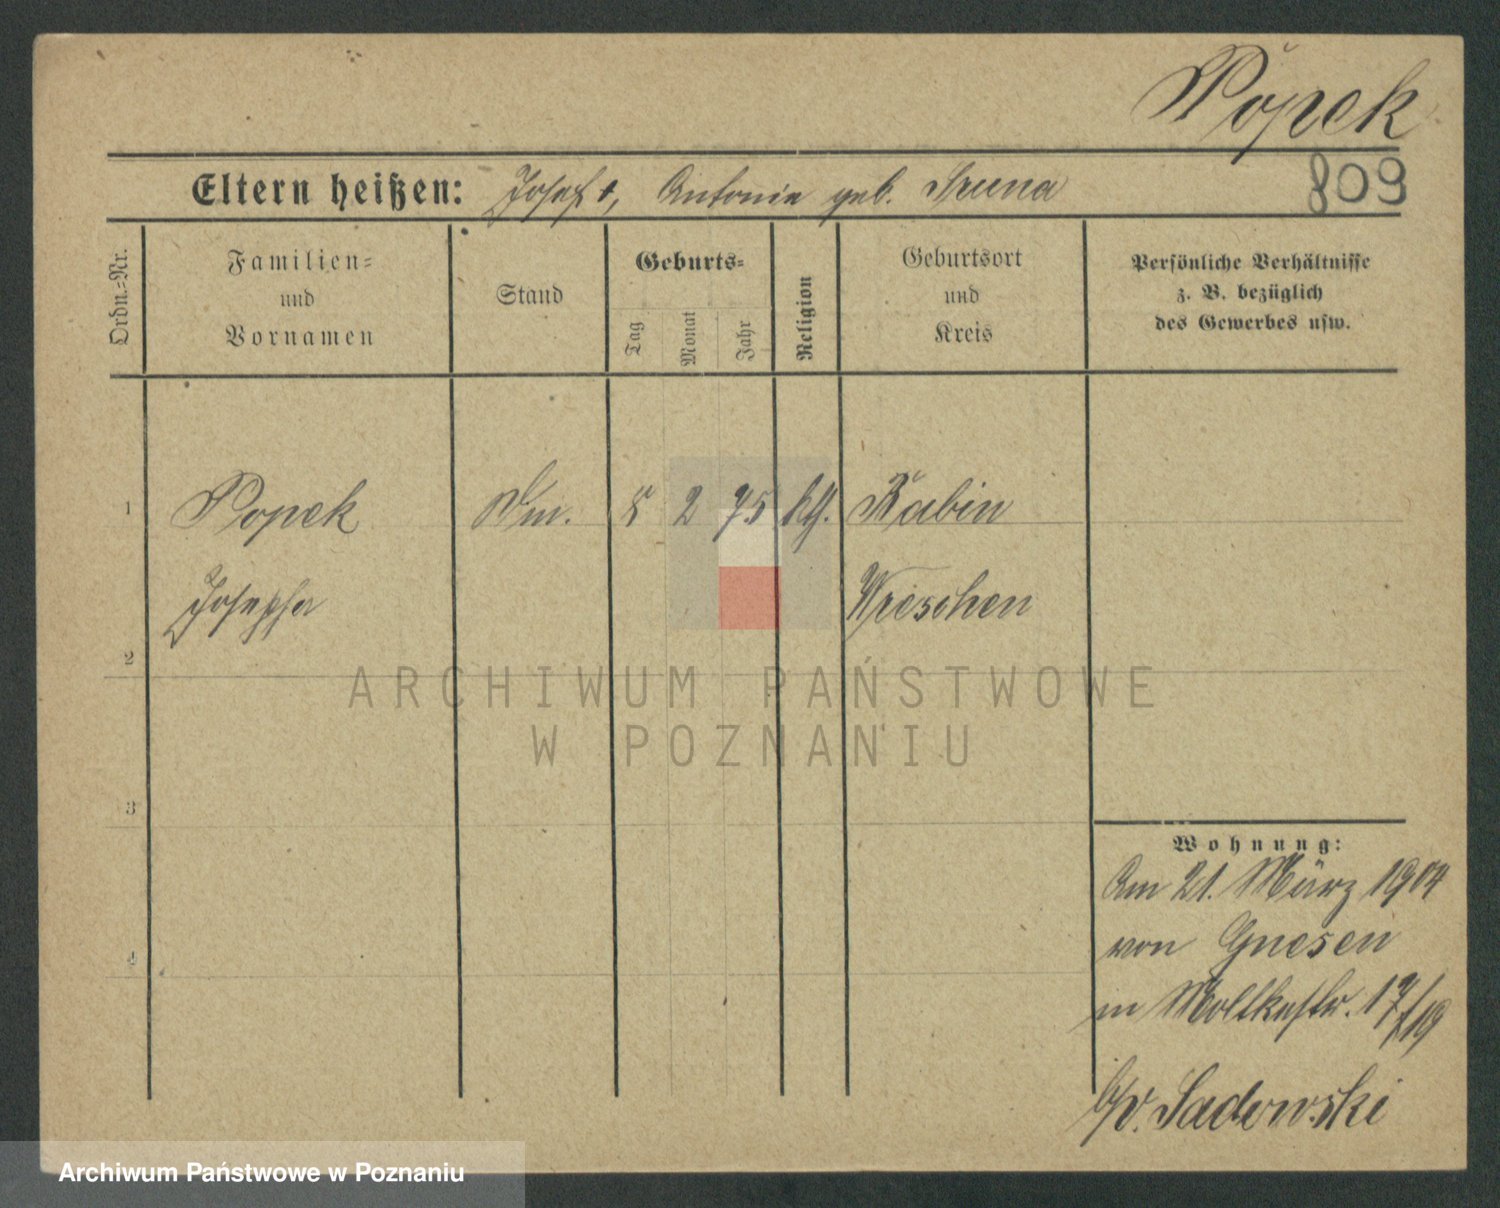 Popek
809
Eltern heißen: Josef +, Antonie geb. Sruna
Ordn.-Nr.
Familien-
und
Vornamen
Stand
Geburts-
Tag
Monat
Jahr
Religion
Geburtsort
und
Kreis
Persönliche Verhältnisse
z. B. bezüglich
des Gewerbes usw.
1
Popek 5 2 75 kth. Babin
Josepha Wreschen
2
ARCHIWUM PAŃSTWOWE
W POZNANIU
3
4
Wohnung:
Am 21. März 1904
von Gnesen
in Moltkestr. 17/19
Sadowski
Archiwum Państwowe w Poznaniu